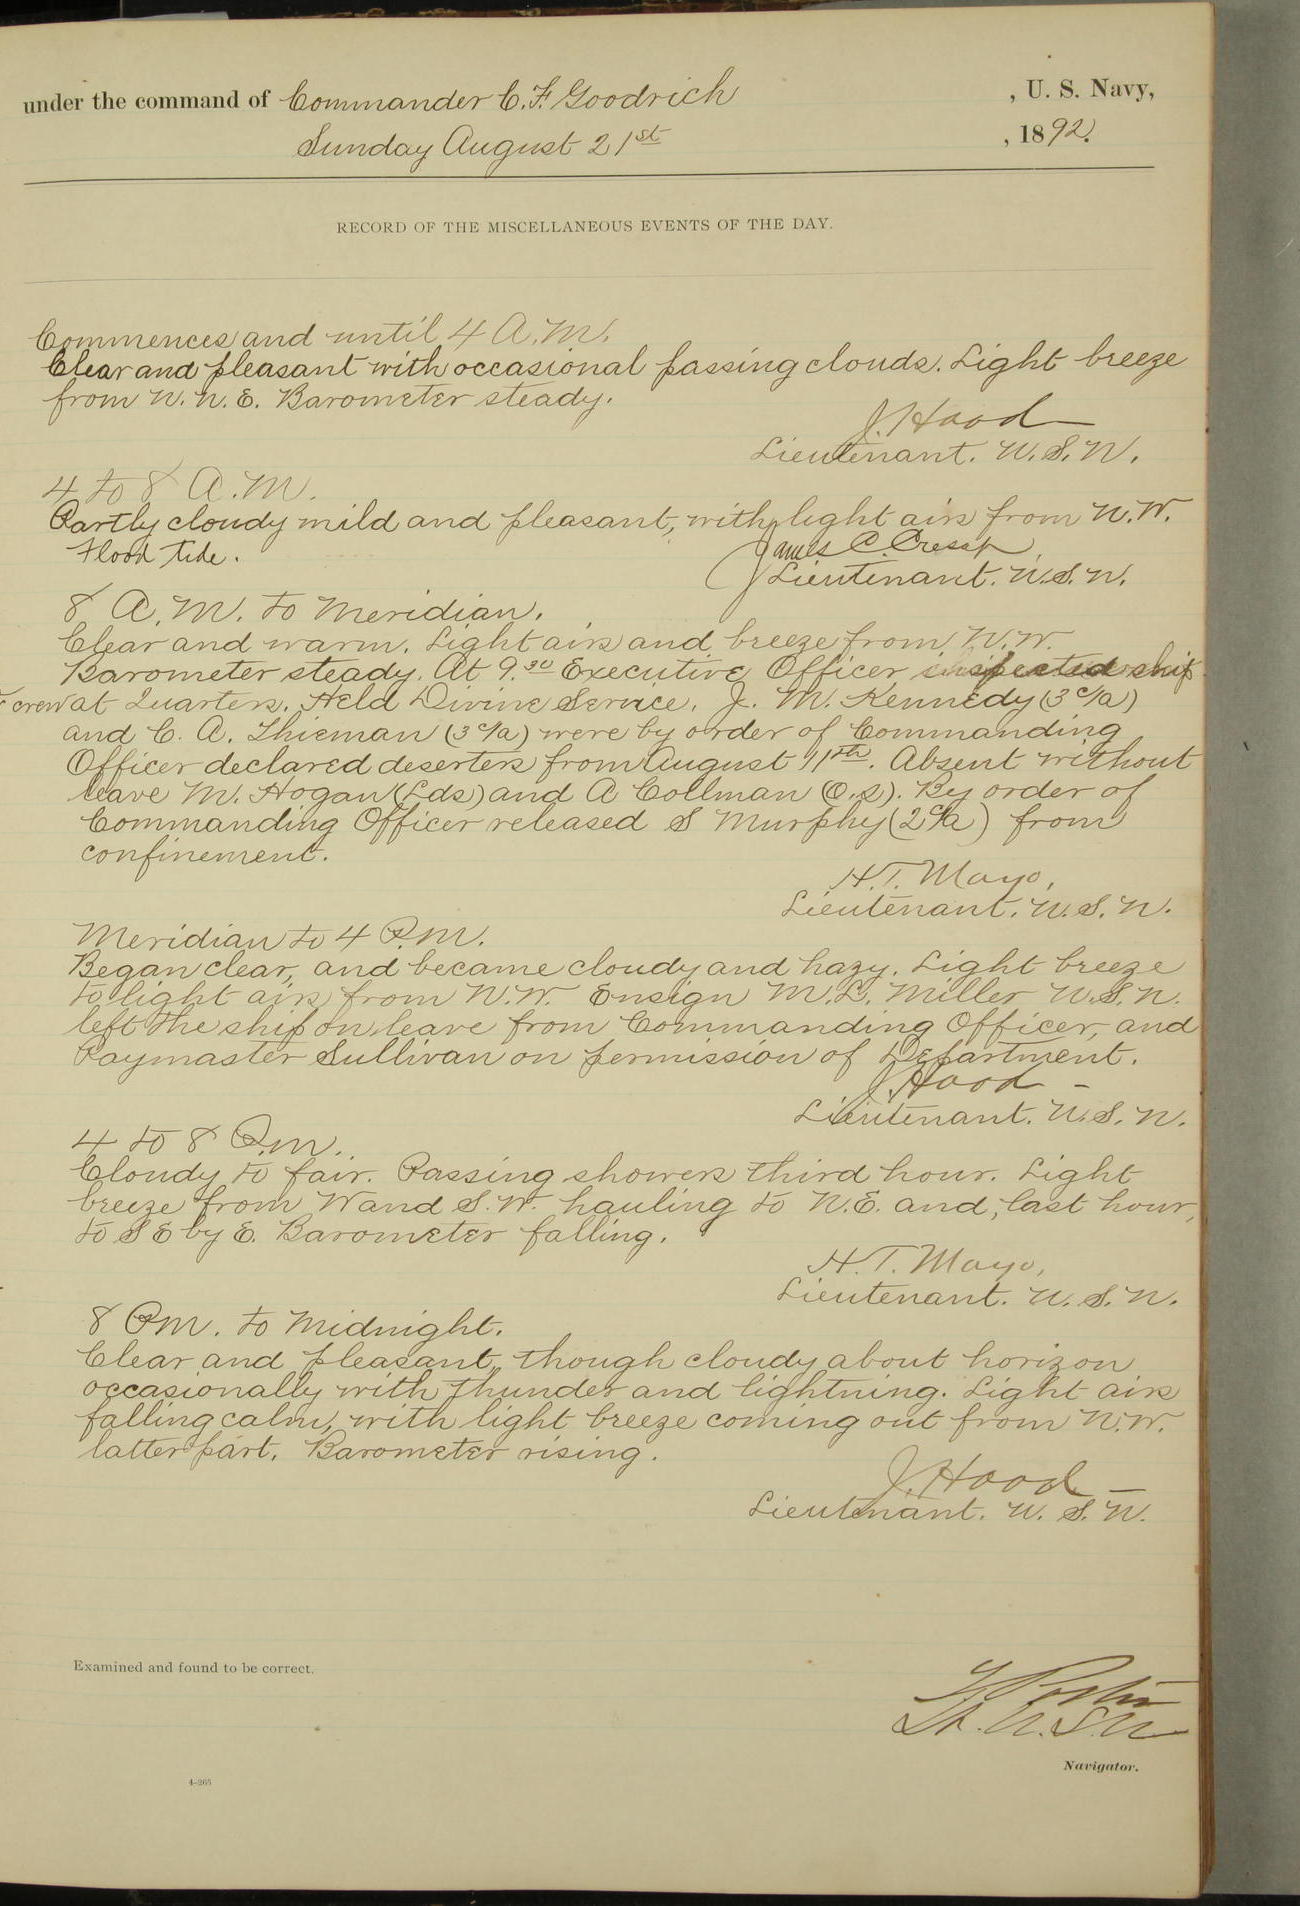 under the command of Commander C. F. Goodrich , U. S. Navy,
Sunday August 21st , 1892.
RECORD OF THE MISCELLANEOUS EVENTS OF THE DAY.
Commences and until 4 A.M.
Clear and pleasant with occasional passing clouds. Light breeze
from N.N.E. Barometer steady.
J. Hood
Lieutenant. U.S.N.
4 to 8 A.M.
Partly cloudy mild and pleasant, with light airs from N.W.
Flood tide.
James C. Cresap
Lieutenant. U.S.N.
8 A.M. to Meridian.
Clear and warm. Light airs and breeze from N.W.
Barometer steady. At 9.30 Executive Officer inspected ship
& crew at Quarters. Held Divine Service. J. M. Kennedy (3 c/a)
and C. A. Thieman (3 c/a) were by order of Commanding
Officer declared deserters from August 11th. Absent without
leave M. Hogan (Lds) and A Collman (O.S). By order of
Commanding Officer released S Murphy (2 c/a) from
confinement.
H.T. Mayo,
Lieutenant. U.S.N.
Meridian to 4 P.M.
Began clear, and became cloudy and hazy. Light breeze
to light airs from N.W. Ensign M.L. Miller U.S.N.
left the ship on leave from Commanding Officer, and
Paymaster Sullivan on permission of Department.
J. Hood
Lieutenant. U.S.N.
4 to 8 P.M.
Cloudy to fair. Passing showers third hour. Light
breeze from W and S.W. hauling to N.E. and, last hour,
to SE by E. Barometer falling.
H.T. Mayo,
Lieutenant. U.S.N.
8 PM. to Midnight.
Clear and pleasant, though cloudy about horizon
occasionally with thunder and lightning. Light airs
falling calm, with light breeze coming out from N.W.
latter part. Barometer rising.
J. Hood
Lieutenant. U.S.N.
Examined and found to be correct.
Porter
Lt. U.S.N
Navigator.
4-265